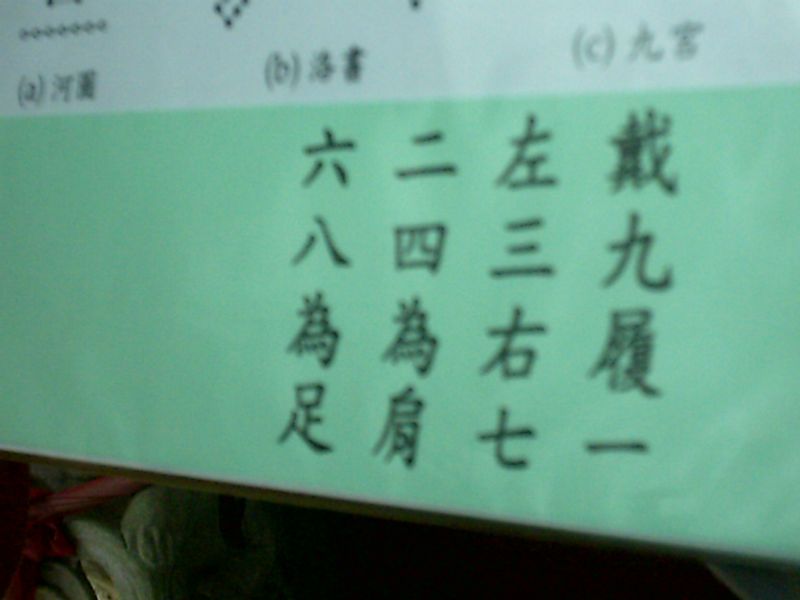 (a) 河圖
(b) 洛書
(c) 九宮
戴九履一
左三右七
二四為肩
六八為足